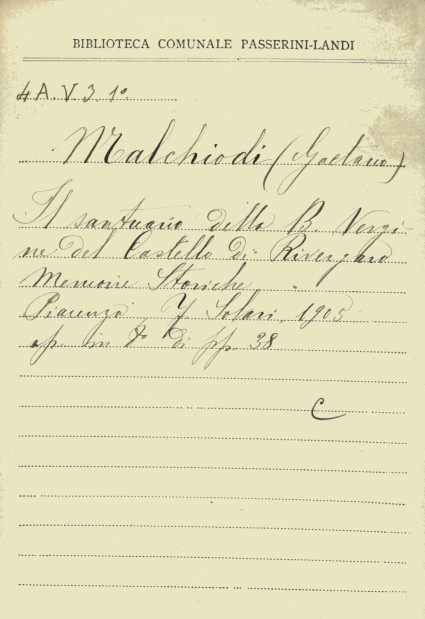 BIBLIOTECA COMUNALE PASSERINI-LANDI
4 A. V. 3. 1º
Malchiodi (Gaetano)
Il santuario della B. Vergi-
ne del Castello di Rivergaro
Memorie Storiche
Piacenza, Solari, 1905
op. in di pp. 38
C